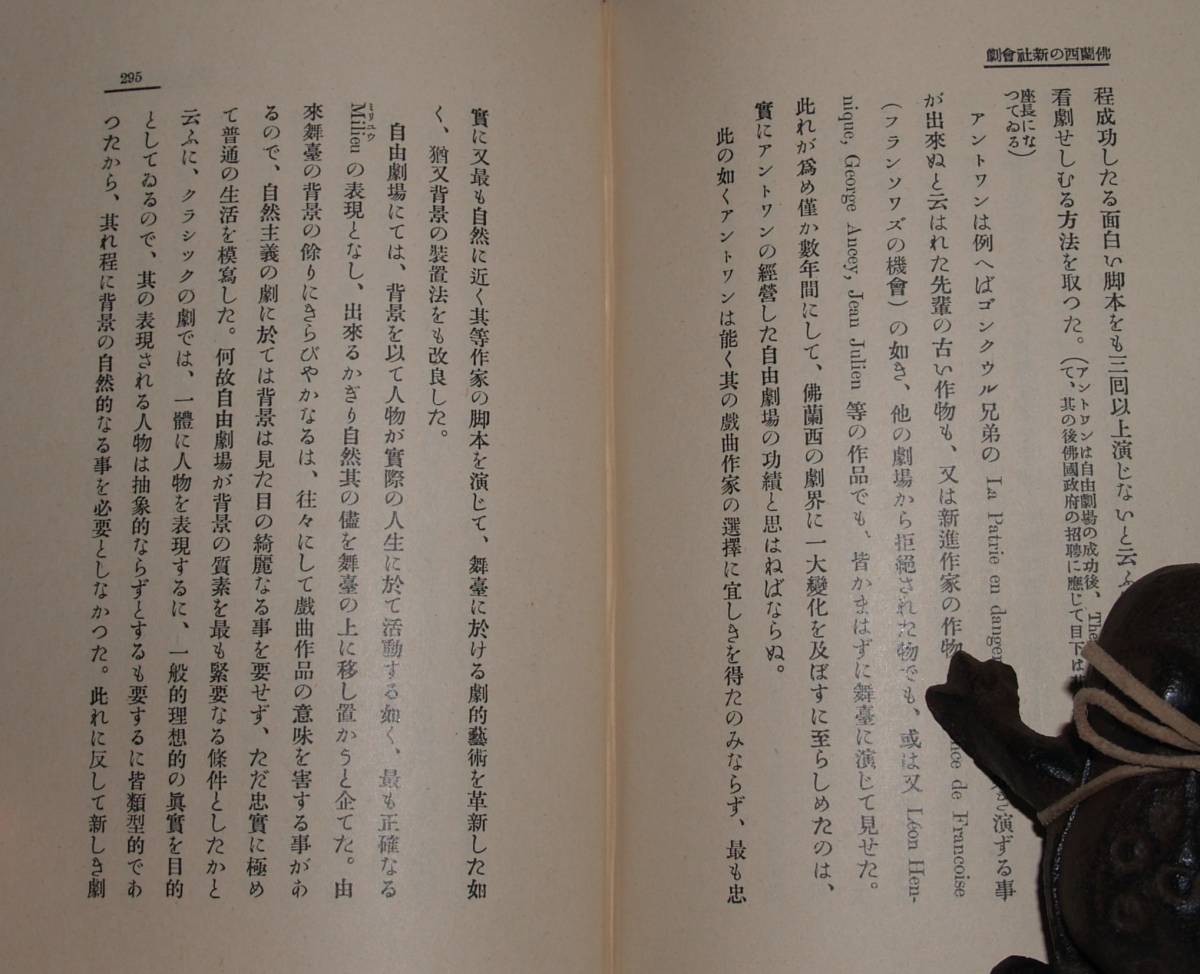 佛蘭西の新社會劇
程成功したる面白い脚本をも三囘以上演じないと云ふ
看劇せしむる方法を取つた。(アントワンは自由劇場の成功後、The
て、其の後佛國政府の招聘に應じて目下は
座長にな
つてゐる)
アントワンは例へばゴンクウル兄弟の La Patrie en danger 演ずる事
が出來ぬと云はれた先輩の古い作物も、又は新進作家の作物 nce de Francoise
(フランソワズの機會)の如き、他の劇場から拒絕された物でも、或は又 Léon Hen-
nique, George Ancey, Jean Julien 等の作品でも、皆かまはずに舞臺に演じて見せた。
此れが爲め僅か數年間にして、佛蘭西の劇界に一大變化を及ぼすに至らしめたのは、
實にアントワンの經營した自由劇場の功績と思はねばならぬ。
此の如くアントワンは能く其の戲曲作家の選擇に宜しきを得たのみならず、最も忠
實に又最も自然に近く其等作家の脚本を演じて、舞臺に於ける劇的藝術を革新した如
く、猶又背景の裝置法をも改良した。
自由劇場にては、背景を以て人物が實際の人生に於て活動する如く、最も正確なる
ミリユウ
Milieu の表現となし、出來るかぎり自然其の儘を舞臺の上に移し置かうと企てた。由
來舞臺の背景の餘りにきらびやかなるは、往々にして戲曲作品の意味を害する事があ
るので、自然主義の劇に於ては背景は見た目の綺麗なる事を要せず、ただ忠實に極め
て普通の生活を模寫した。何故自由劇場が背景の質素を最も緊要なる條件としたかと
云ふに、クラシックの劇では、一體に人物を表現するに、一般的理想的の眞實を目的
としてゐるので、其の表現される人物は抽象的ならずとするも要するに皆類型的であ
つたから、其れ程に背景の自然的なる事を必要としなかつた。此れに反して新しき劇
295